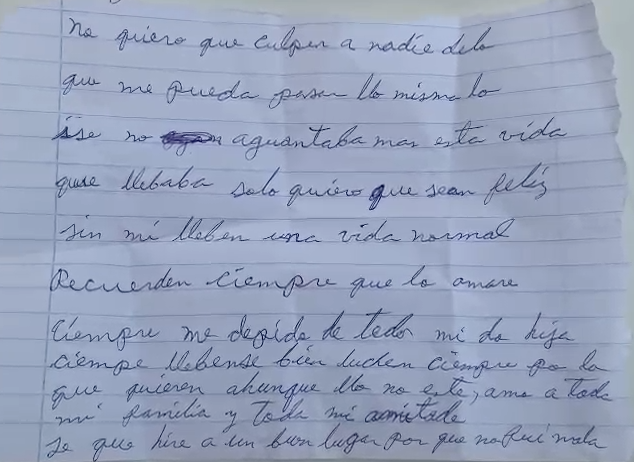 No quiero que culpen a nadie delo
que me pueda pasar llo misma lo
ise no aguantaba mas esta vida
quse llebaba solo quiero que sean feliz
sin mi lleben una vida normal
Recuerden ciempre que lo amare
Ciempre me depido de todos mi do hija
ciempe llebense bien luchen ciempre po lo
que quieren ahunque llo no este, amo a toda
mi familia y toda mi amitade
se que hire a un buen lugar por que no fui mala